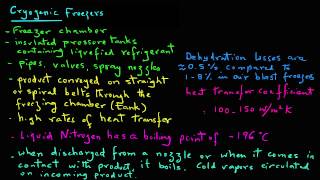 Cryogenic Freezers
- Freezer chamber
- insulated pressure tanks
containing liquefied refrigerant
- pipes, valves, spray nozzles
- product conveyed on straight
or spiral belts through the
freezing chamber (tank)
- high rates of heat transfer
- Liquid Nitrogen has a boiling point of -196°C
- when discharged from a nozzle or when it comes in
contact with product, it boils. Cold vapors circulated
on incoming product.
Dehydration losses are
≈ 0.5% compared to
1-8% in air blast freezers
heat transfer coefficient
100-150 W/m²K